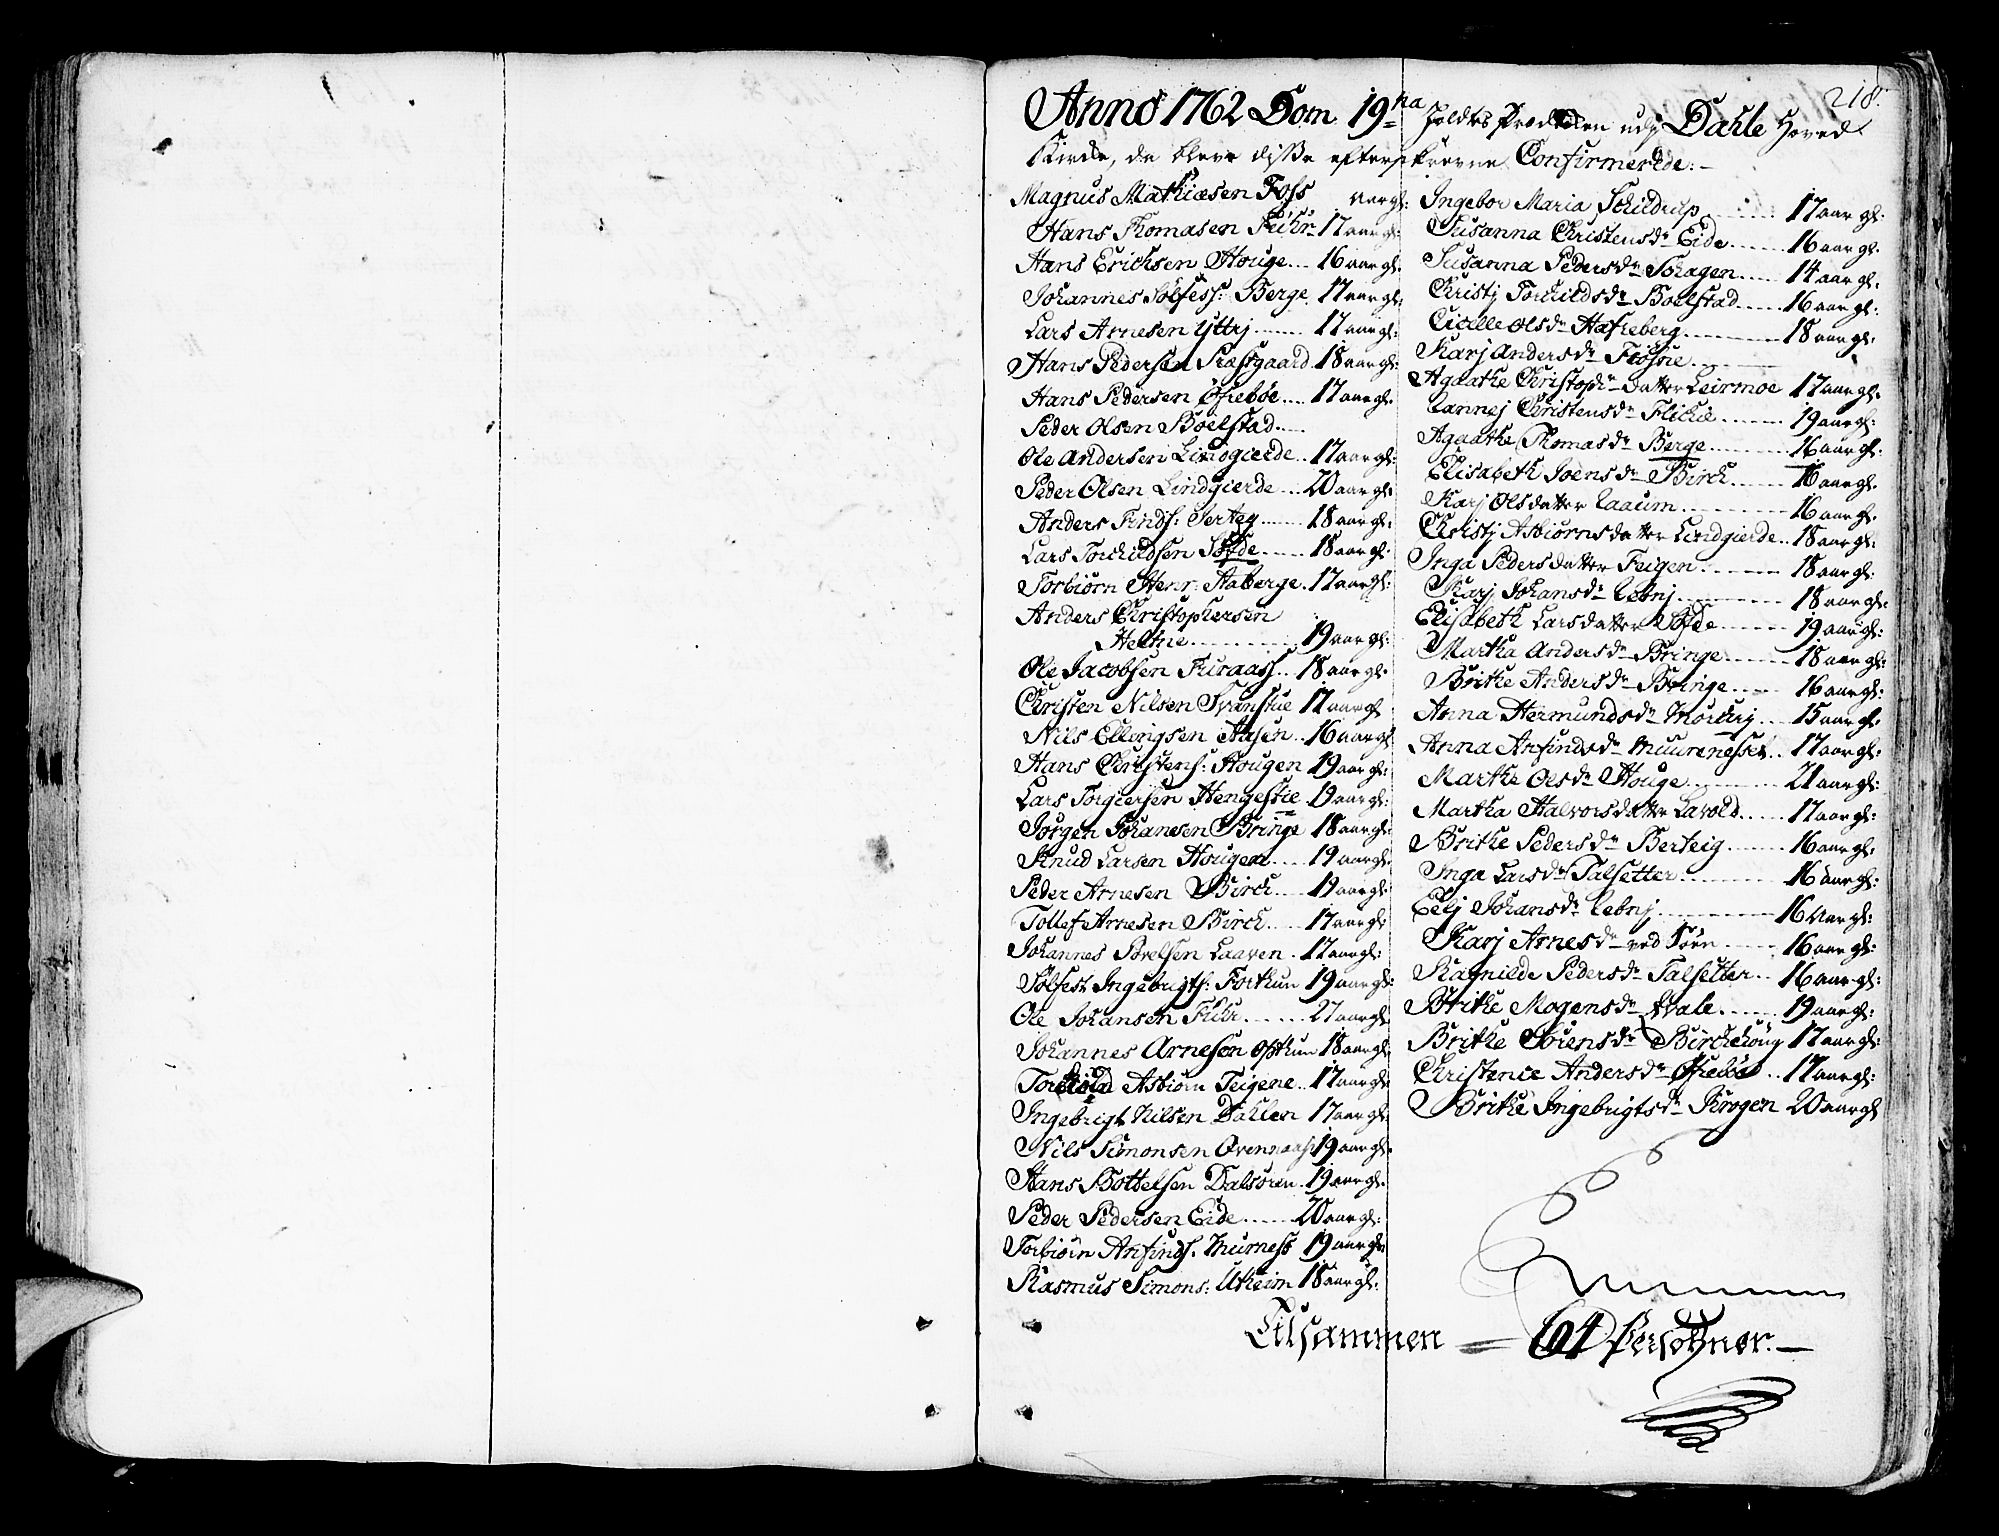 218.
Anno 1762 Dom 19na holdtes Prædiken udj Dahle Hoved
Kirke, da bleve disse efterskrevne Confirmerede:
Magnus Mathiæsen Foss aar gl:
Hans Thomasen Fuhr 17 aar gl:
Hans Erichsen Houge 16 aar gl:
Johannes Sølfess: Berge 17 aar gl:
Lars Arnesen Yttrj 17 aar gl:
Hans Pedersen Præstgaard 18 aar gl:
Hans Pedersen Øfrebøe 17 aar gl:
Peder Olsen Bolstad
Ole Andersen Lindgierde 17 aar gl:
Peder Olsen Lindgierde 20 aar gl:
Anders Finds: 18 aar gl:
Lars Torchildsen 18 aar gl:
Torbiørn Henr: Aaberge 17 aar gl:
Anders Christophersen
Heltne 19 aar gl:
Ole Jacobsen Furaass 18 aar gl:
Christen Nilsen Svanstue 17 aar gl
Nils Ellingsen Aasen 16 aar gl
Hans Christens: Hougen 19 aar gl:
Lars Torgiersen 19 aar gl:
Jørgen Johanesen Bringe 18 aar gl:
Knud Larsen Hougen 19 aar gl:
Peder Arnesen Birch 19 aar gl:
Tollef Arnesen Birch 17 aar gl:
Johannes Laaven 17 aar gl:
Sølfest Ingebrigts: Forthun 19 aar gl:
Ole Johansen Fuhr 27 aar gl
Johannes Arnesen Opthun 18 aar gl:
Asbiørn Teigene 17 aar gl:
Ingebrigt Nilsen Dahlen 17 aar gl:
Nils Simonsen 19 aar gl:
Hans Bottelsen Dalsøren 19 aar gl:
Peder Pedersen Eide 20 aar gl:
Torbiørn Anfinds: Murness 19 aar gl:
Rasmus Simons: Utheim 18 aar gl:
Ingebor Maria Schildrup 17 aar gl:
Susanna Christensdr Eide 16 aar gl:
Susanna Pedersdr 14 aar gl:
Christj Torchildsdr Bolstad 16 aar gl:
Cicelle Olsdr 18 aar gl:
Karj Andersdr
Agaathe Christophr datter Leirmoe 17 aar gl:
Lannej Christensdr 19 aar gl:
Agaathe Thomasdr Berge 16 aar gl:
Elisabeth Joensdr Birch 16 aar gl:
Karj Olsdatter 16 aar gl:
Christj Asbiørnsdatter Lindgierde 18 aar gl:
Inga Pedersdatter Feigen 18 aar gl:
Karj Johansdr 18 aar gl:
Elisabeth Larsdatter 19 aar gl:
Martha Andersdr Bringe 18 aar gl:
Brithe Andersdr Bringe 16 aar gl:
Anna Hermundsdr 15 aar gl:
Anna Anfindsdr 17 aar gl:
Marthe Olsdr Houge 21 aar gl:
Martha Halvorsdatter 17 aar gl:
Brithe Pedersdr Berteig 16 aar gl:
Inga Larsdr Talsetter 16 aar gl:
Johansdr 16 aar gl:
Karj Arnesdr ved Søen 16 aar gl:
Ragnilde Pedersdr Talsetter 16 aar gl:
Brithe Mogensdr Kvale 19 aar gl:
Brithe Sørensdr 17 aar gl:
Christence Andersdr Øfrebøe 17 aar gl:
Brithe Ingebrigtsdr Krogen 20 aar gl
Tilsammen = 64 Persohner.